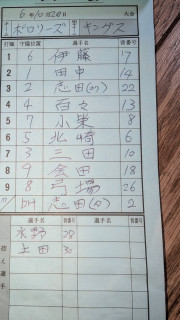 6年10月20日 大会
ポロリーズ キングス
打順 守備位置 選手名 背番号
1 6 伊藤 17
2 1 田中 14
3 2 志田(幼) 22
4 4 百々 13
5 7 小栗 8
6 5 北崎 6
7 3 三田 10
8 9 金田 18
9 8 弓場 26
DH 志田(父) 2
選手名 背番号 選手名 背番号
控え選手
水野 28
上田 30